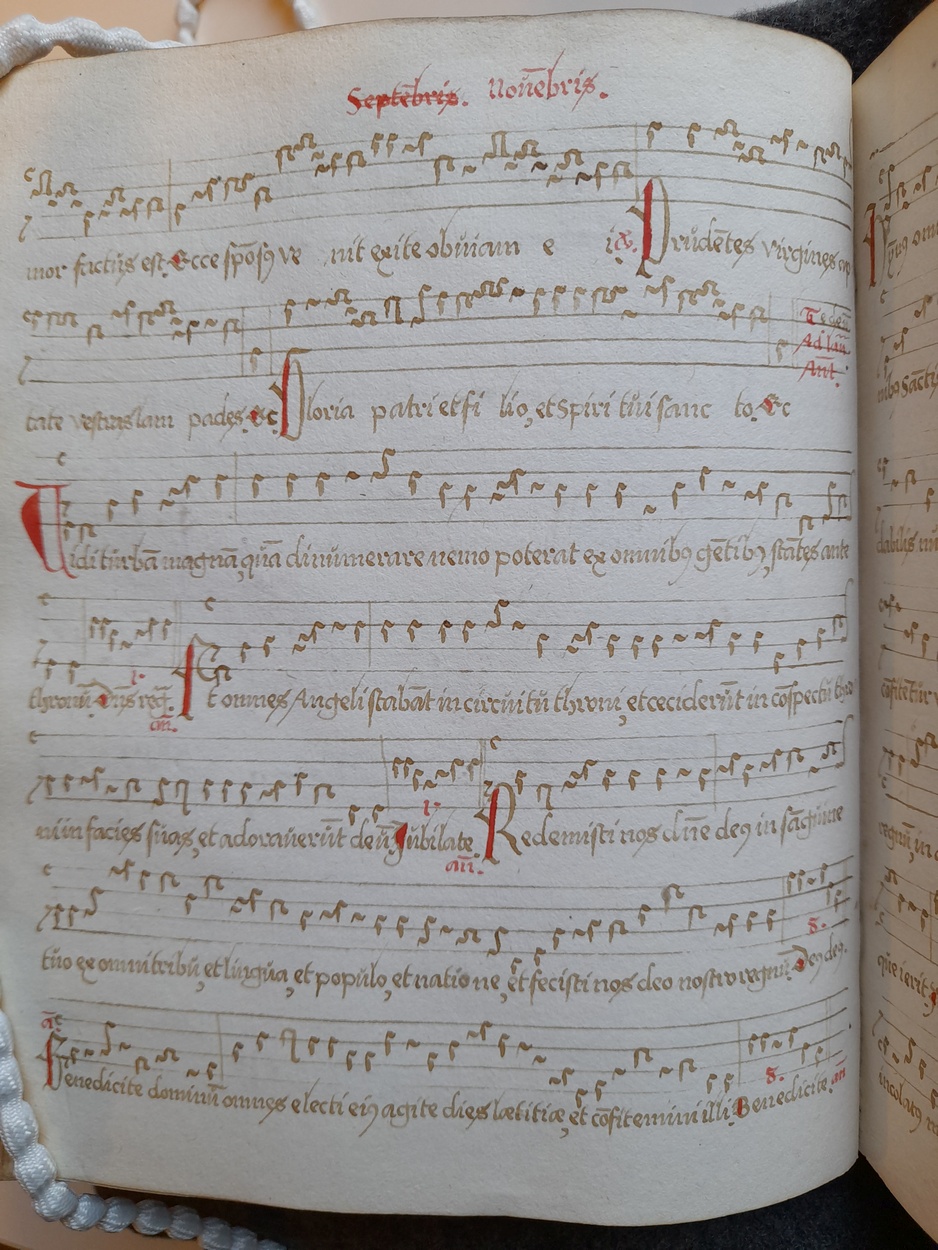 Septẽbris. Nouẽbris.
mor factus est. Ecce spõsꝰ ve nit exite obuiam e i. ℟. Prudẽtes virgines
tate vestras lam pades. &c Gloria patri et fi lio, et Spiri tui sanc to. &c
Ad lau.
Ant.
Vidi turbã magnã, quã dinumerare nemo poterat ex omnibꝰ gẽtibꝰ, stãtes ante
thronũ. Dñs reg. Et omnes Angeli stabãt in circuitu throni, et ceciderũt in cõspectu thro
añ.
ni in facies suas, et adorauerũt deũ. Jubilate Redemisti nos dñe deꝰ in sãguine
añ.
tuo ex omni tribu, et lingua, et populo, et natione, et fecisti nos deo nostro regnũ. Deꝰ deꝰ.
Benedicite dominũ omnes electi eiꝰ agite dies lætitiæ, et cõfitemini illi. Benedicite. añ